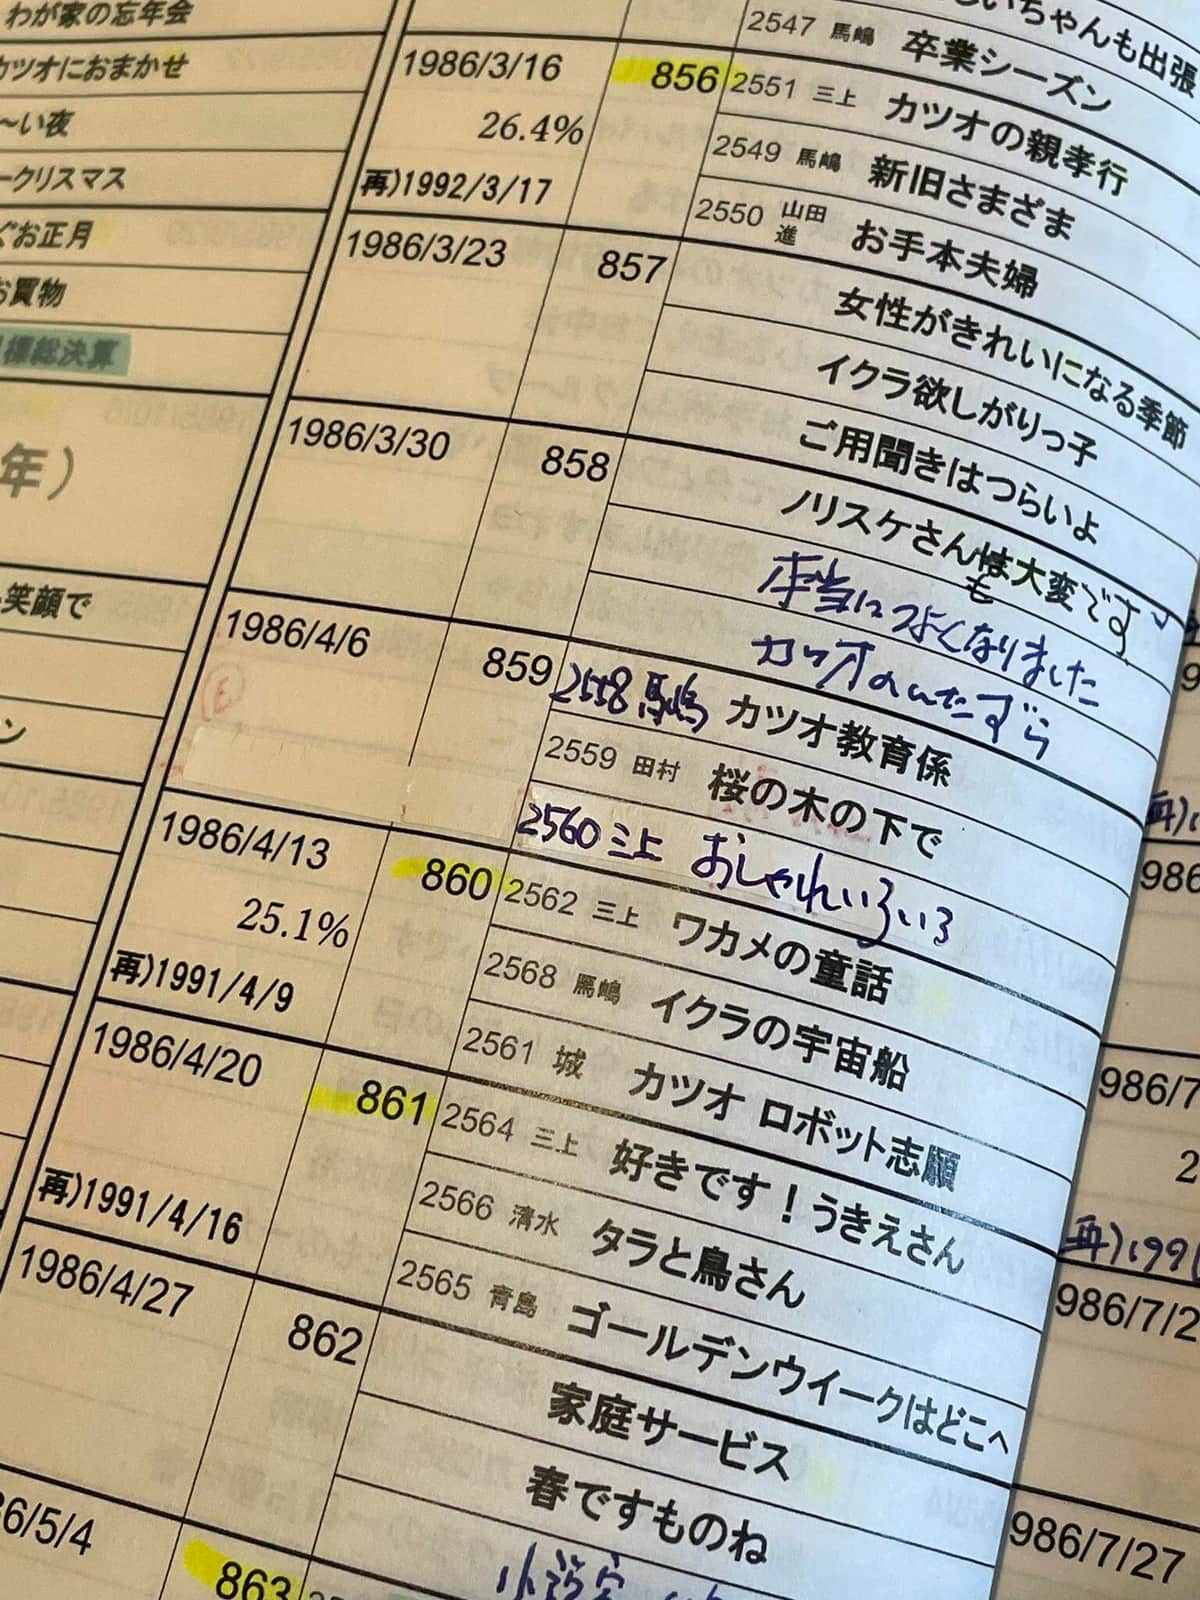 わが家の忘年会
カツオにおまかせ
～い夜
ークリスマス
ぐお正月
お買物
標総決算
年）
笑顔で
ン
ちゃんも出張
2547 馬嶋 卒業シーズン
1986/3/16 856 2551 三上 カツオの親孝行
26.4% 2549 馬嶋 新旧さまざま
再)1992/3/17 2550 山田進 お手本夫婦
1986/3/23 857 女性がきれいになる季節
イクラ欲しがりっ子
ご用聞きはつらいよ
1986/3/30 858 ノリスケさんは大変です
も
本当によくなりました
カツオのいたずら
1986/4/6 859 2558 馬嶋 カツオ教育係
③
2559 田村 桜の木の下で
2560 三上 おしゃれいろいろ
1986/4/13 860 2562 三上 ワカメの童話
25.1% 2568 馬嶋 イクラの宇宙船
再)1991/4/9 2561 城 カツオ ロボット志願
1986/4/20 861 2564 三上 好きです！うきえさん
2566 清水 タラと鳥さん
再)1991/4/16 2565 青島 ゴールデンウイークはどこへ
1986/4/27 862 家庭サービス
春ですものね
小説家
6/5/4 863
再)1
986
986/7
2
再)1991
986/7/2
986/7/27